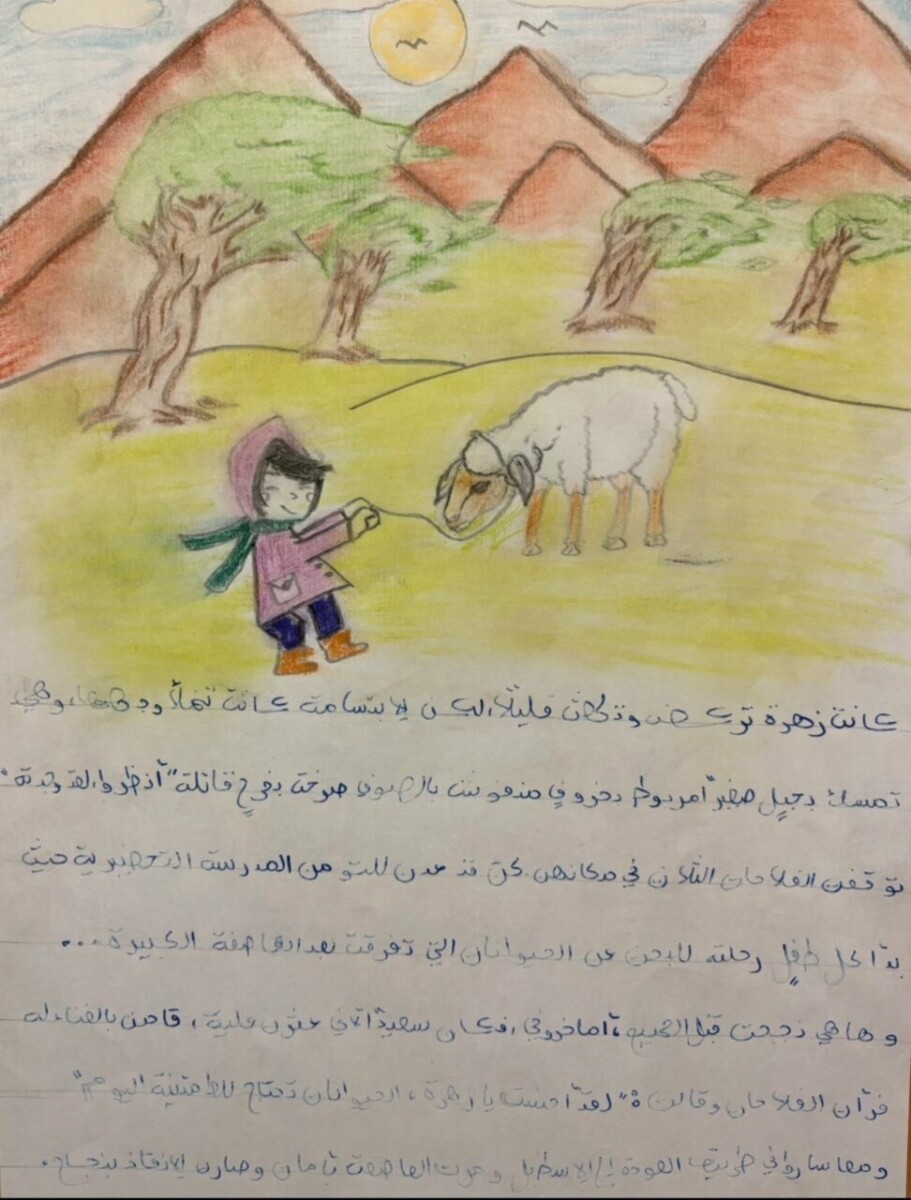 كانت زهرة تركض وتلهث قليلًا، لكن الابتسامة كانت تملأ وجهها، وهي
تمسك بحبلٍ صغيرًا مربوط بخروفي منفوش بالصوف صرخت بفرح قائلة "أنظروا لقد وجدته"
توقفن الفلاحات الثلاث في مكانهن. كن قد عدن للتو من المدرسة التحضيرية حيث
بدأ كل طفلٍ رحلته للبحث عن الحيوانات التي تفرقت بعد العاصفة الكبيرة...
وها هي نجحت قبل الجميع، أما خروفي، فكان سعيدًا لأني عثرت علية، قامت بالعناية
الفلاحات وقالت: "لقد أحسنت يا زهرة، الحيوانات تحتاج للطمئنينة اليوم"
ومعا ساروا في طريق العودة إلى الاسطبل ومرت العاصفة بأمان وصارت الانقاذ بنجاح.